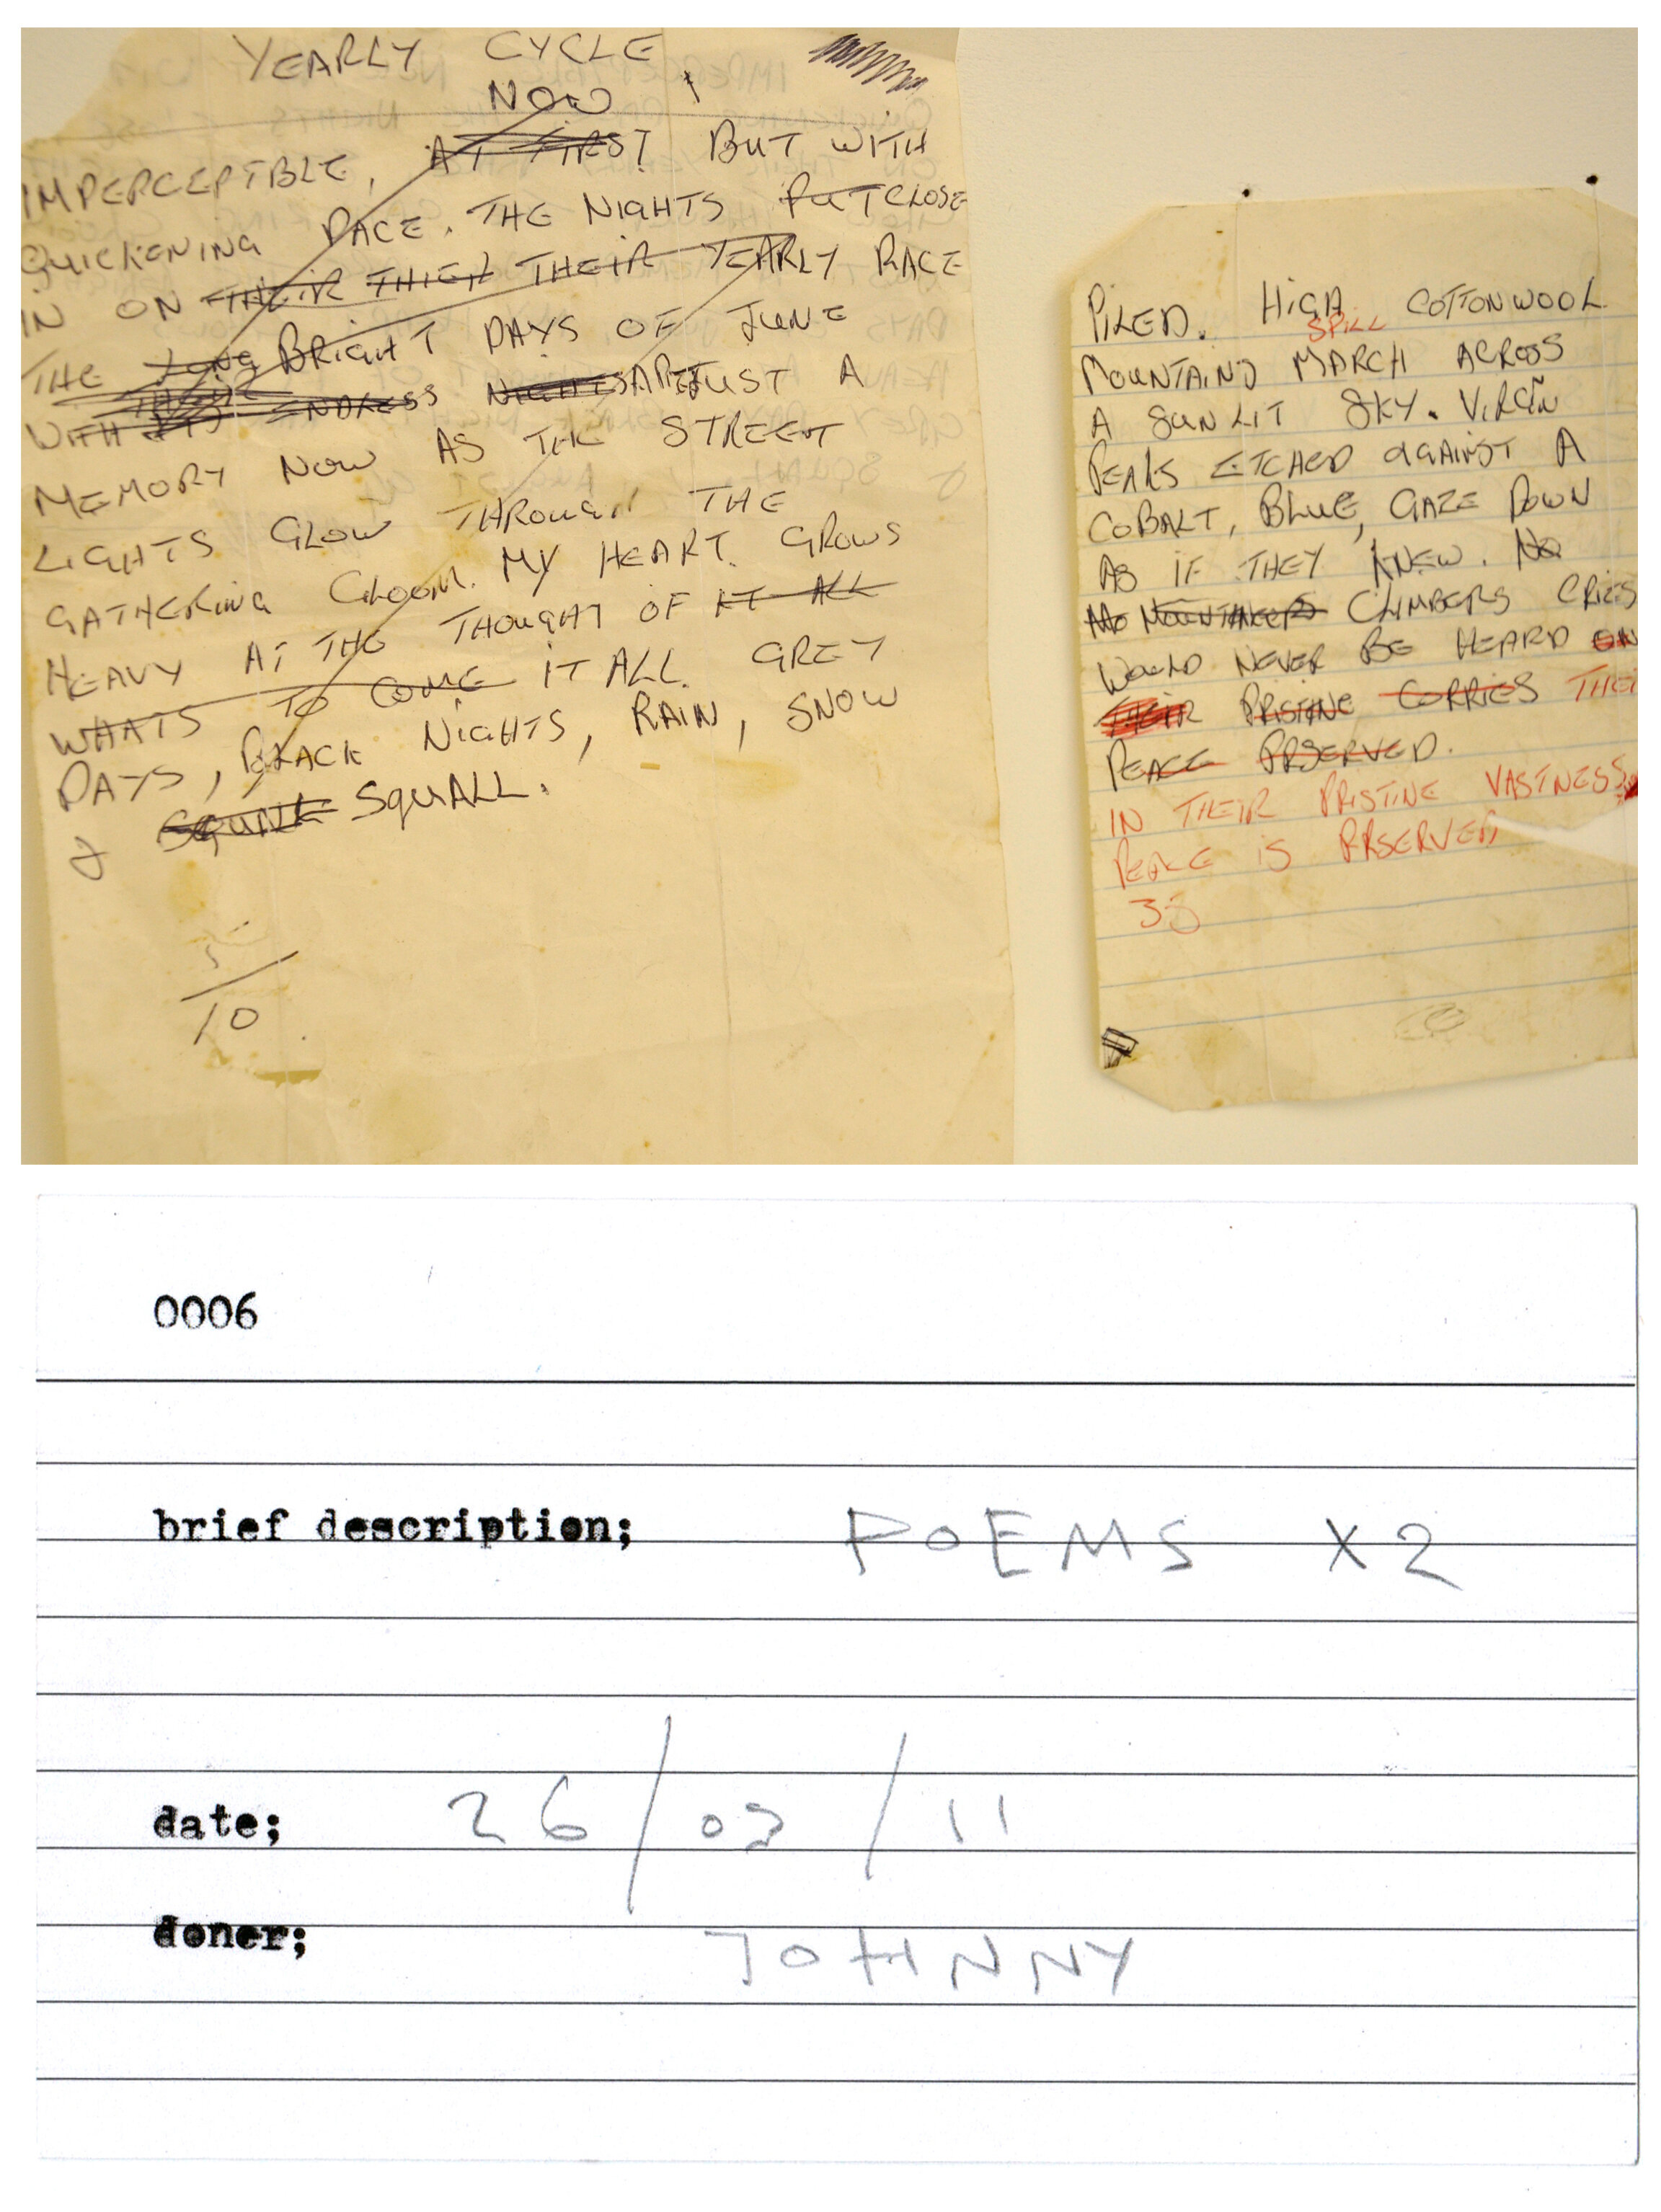 YEARLY CYCLE
NOW
IMPERCEPTIBLE, AT FIRST BUT WITH
QUICKENING PACE. THE NIGHTS PUT CLOSE
IN ON THEIR THIER THEIR YEARLY RACE
THE LONG BRIGHT DAYS OF JUNE
WITH ENDLESS NIGHTS ARE JUST A
MEMORY NOW AS THE STREET
LIGHTS GLOW THROUGH THE
GATHERING GLOOM. MY HEART GROWS
HEAVY AT THE THOUGHT OF IT ALL
WHATS TO COME IT ALL. GREY
DAYS, BLACK NIGHTS, RAIN, SNOW
& SQUALL.
5/10
PILED. HIGH COTTONWOOL
SPILL
MOUNTAINS MARCH ACROSS
A SUNLIT SKY. VIRGIN
PEAKS ETCHED AGAINST A
COBALT, BLUE, GAZE DOWN
AS IF THEY KNEW. NO
NO MOUNTAINEERS CLIMBERS CRIES
WOULD NEVER BE HEARD ON
THEIR PRISTINE CORRIES THEI
PEACE PRSERVED.
IN THEIR PRISTINE VASTNESS
PEACE IS PRSERVED
33
0006
brief description; POEMS X2
date; 26/03/11
doner; JOHNNY